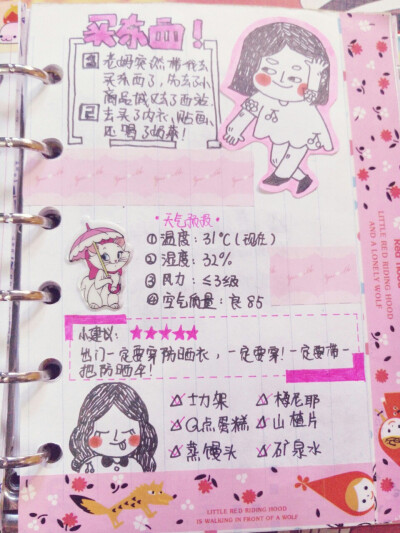 买东西！
1 老妈突然带我去
买东西了，先去了小
商品城又去了西站
2 去买了内衣，贴画，
还喝了奶茶！
·天气预报·
①温度：31℃（现在）
②湿度：32%
③风力：≤3级
④空气质量：良 85
小建议：★★★★★
出门一定要穿防晒衣，一定要穿！一定要带一
把防晒伞！
士力架 梅尼耶
Q点蛋糕 山楂片
蒸馒头 矿泉水
LITTLE RED RIDING HOOD
AND A LONELY WOLF
LITTLE RED RIDING HOOD
IS WALKING IN FRONT OF A WOLF